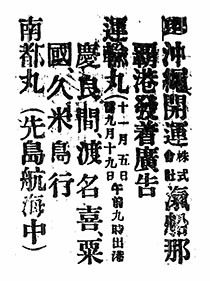 沖繩開運株式會社滊船那
覇港發着廣告
運輸丸(十一月五日午前九時出港
舊九月十九日
慶良間渡名喜、粟
國久米島行
南都丸(先島航海中)